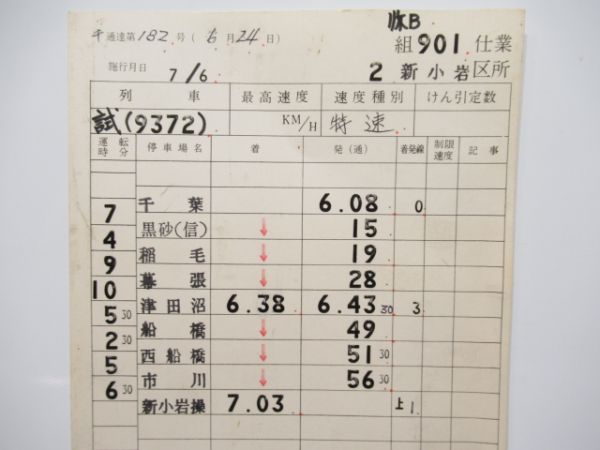 千通達第182号(6月24日)
臨B
組901仕業
施行月日 7/6
2 新小岩区所
列車 最高速度 速度種別 けん引定数
試(9372) KM/H 特速
運転時分 停車場名 着 発(通) 着発線 制限速度 記事
千葉 6.08 0
7
黒砂(信) ↓ 15
4
稲毛 ↓ 19
9
幕張 ↓ 28
10
津田沼 6.38 6.43 30 3
5 30
船橋 ↓ 49
2 30
西船橋 ↓ 51 30
5
市川 ↓ 56 30
6 30
新小岩操 7.03 上1